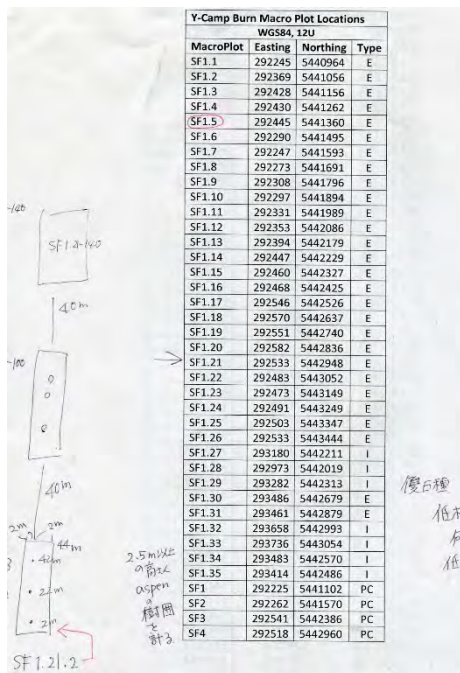 Y-Camp Burn Macro Plot Locations
WGS84, 12U
MacroPlot Easting Northing Type
SF1.1 292245 5440964 E
SF1.2 292369 5441056 E
SF1.3 292428 5441156 E
SF1.4 292430 5441262 E
SF1.5 292445 5441360 E
SF1.6 292290 5441495 E
SF1.7 292247 5441593 E
SF1.8 292273 5441691 E
SF1.9 292308 5441796 E
SF1.10 292297 5441894 E
SF1.11 292331 5441989 E
SF1.12 292353 5442086 E
SF1.13 292394 5442179 E
SF1.14 292447 5442229 E
SF1.15 292460 5442327 E
SF1.16 292468 5442425 E
SF1.17 292546 5442526 E
SF1.18 292570 5442637 E
SF1.19 292551 5442740 E
SF1.20 292582 5442836 E
SF1.21 292533 5442948 E
SF1.22 292483 5443052 E
SF1.23 292473 5443149 E
SF1.24 292491 5443249 E
SF1.25 292503 5443347 E
SF1.26 292533 5443444 E
SF1.27 293180 5442211 I
SF1.28 292973 5442019 I
SF1.29 293282 5442313 I
SF1.30 293486 5442679 E
SF1.31 293461 5442879 E
SF1.32 293658 5442993 I
SF1.33 293736 5443054 I
SF1.34 293483 5442570 I
SF1.35 293414 5442486 I
SF1 292225 5441102 PC
SF2 292262 5441570 PC
SF3 292541 5442386 PC
SF4 292518 5442960 PC
-140
40m
-100
40m
2m 2m
44m
42m
2m
SF1.21.2
2.5m以上
の高さ
aspen
の
樹囲
を
計る
優占種